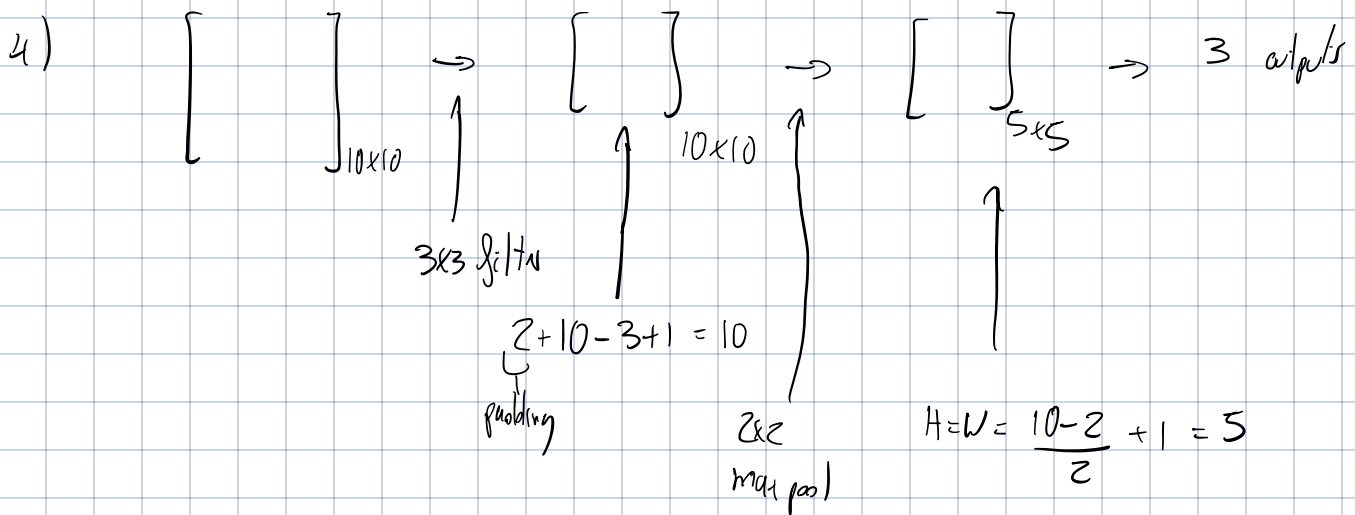 4) [ ]10x10 → [ ]10x10 → [ ]5x5 → 3 outputs
3x3 filter
2+10-3+1 = 10
padding
2x2
max pool
H=W= (10-2)/2 + 1 = 5